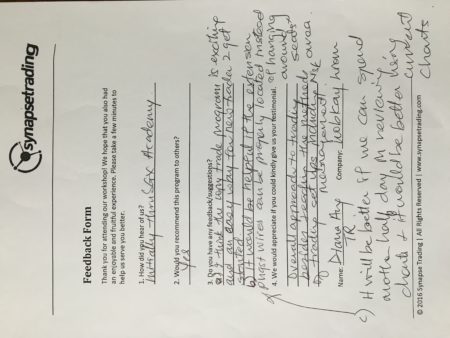 synapsetrading
Feedback Form
Thank you for attending our workshop! We hope that you also had
an enjoyable and fruitful experience. Please take a few minutes to
help us serve you better.
1. How did you hear of us?
Initially thru SGX Academy
2. Would you recommend this program to others?
Yes
3. Do you have any feedback/suggestions?
a) I think the copy trade program is exciting
and an easy way for new trader 2 get
started
b) It would be helpful if the extension
plugs/wires can be properly located instead
of hanging
around
seats
4. We would appreciate if you could kindly give us your testimonial.
overall approach to trading
besides teaching the methods
of trading set ups including risk area.
management.
Name: Diana Ang
Company:
c) It will be better if we can spend
another half day in reviewing
charts & it would be better using
current
charts
© 2016 Synapse Trading | All Rights Reserved | www.synapsetrading.com